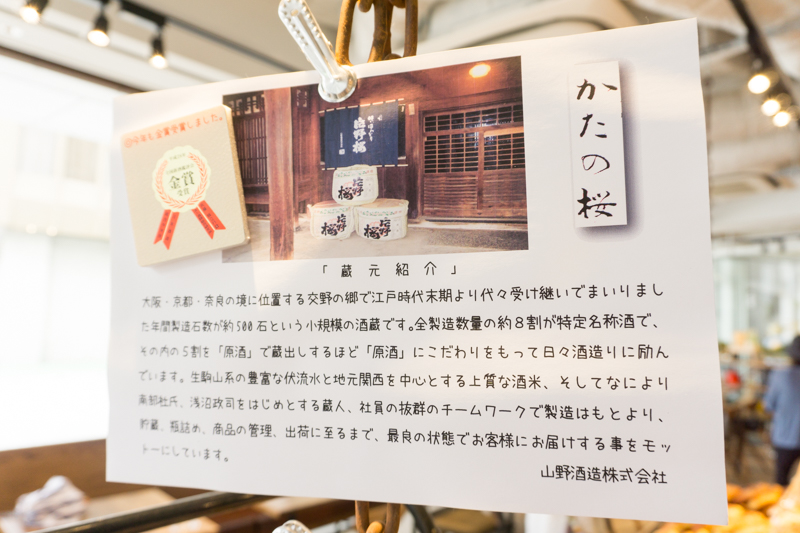 今年も金賞受賞しました。
金賞
受賞
片野桜
かたの桜
「蔵元紹介」
大阪・京都・奈良の境に位置する交野の郷で江戸時代末期より代々受け継いでまいりまし
た年間製造石数が約500石という小規模の酒蔵です。全製造数量の約8割が特定名称酒で、
その内の5割を「原酒」で蔵出しするほど「原酒」にこだわりをもって日々酒造りに励ん
でいます。生駒山系の豊富な伏流水と地元関西を中心とする上質な酒米、そしてなにより
南部杜氏、浅沼政司をはじめとする蔵人、社員の抜群のチームワークで製造はもとより、
貯蔵、瓶詰め、商品の管理、出荷に至るまで、最良の状態でお客様にお届けする事をモッ
トーにしています。
山野酒造株式会社